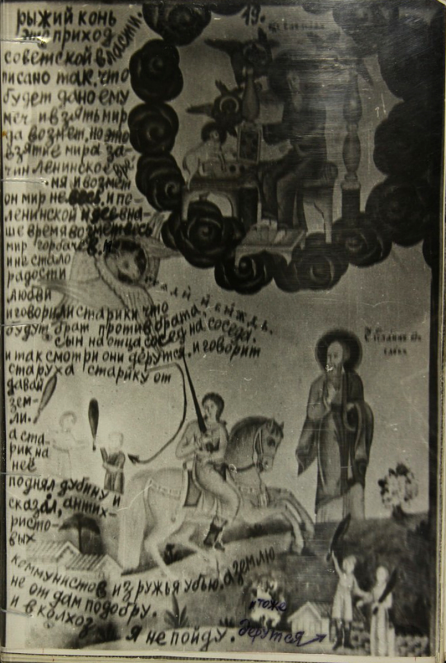 19.
рыжий конь
это приход
советской власти.
писано так, что
будет дано ему
меч, и взять мир
да возмет, но это
взятие мира за
чин Ленинское вре
ня и возмет
он мир не весь, и по
ленинской идее в на
ше время возмет весь
мир горбачев, и
и не стало
радости
любви
и говорили старики что
будут брат против брата.
сын на отца, сосед на соседа.
и так смотри они дерутся. и говорит
старуха старику от
давай
зем-
ли.
а ста-
рик на
нее
поднял дубину и
сказал, антих-
ристо-
вых
коммунистов из ружья убью. а землю
не от дам подобру.
и в колхоз
Я не пойду.
тоже
дерутся